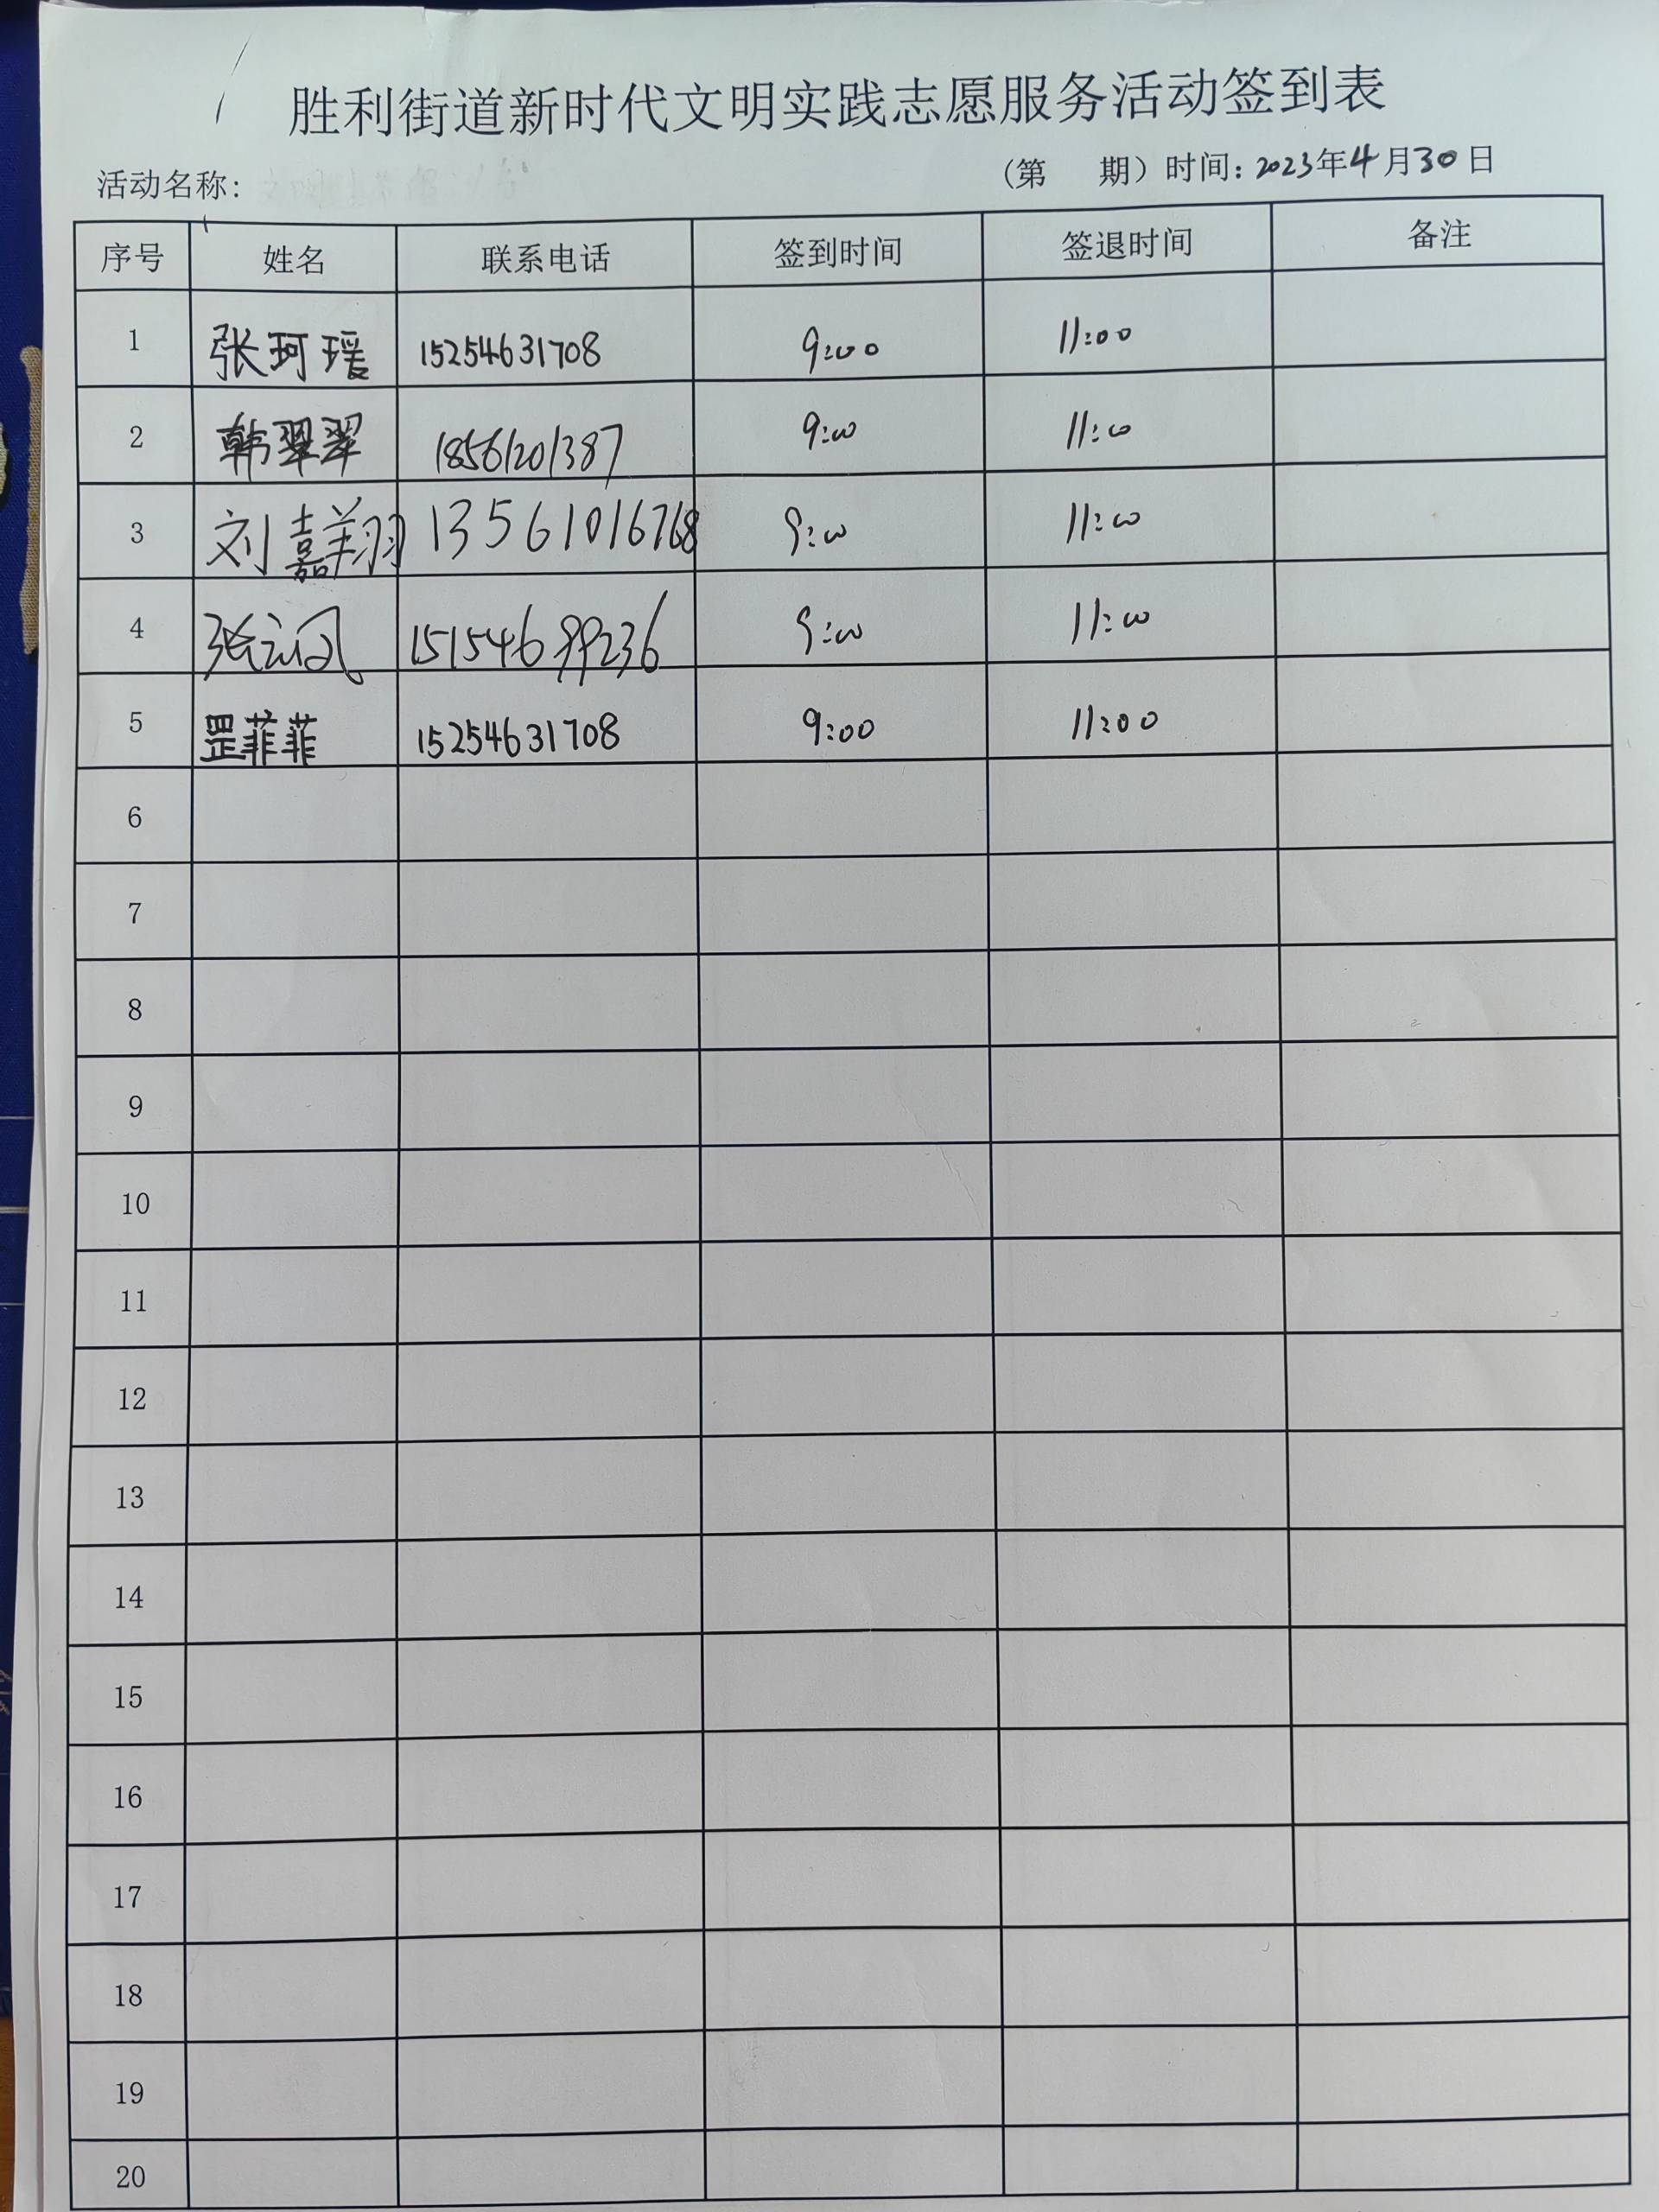 胜利街道新时代文明实践志愿服务活动签到表
活动名称: (第 期) 时间: 2023年4月30日
序号 姓名 联系电话 签到时间 签退时间 备注
1 张珂瑗 15254631708 9:00 11:00
2 韩翠翠 18561201387 9:00 11:00
3 刘嘉翔 13561016768 9:00 11:00
4 张云凤 15154699236 9:00 11:00
5 罡菲菲 15254631708 9:00 11:00
6
7
8
9
10
11
12
13
14
15
16
17
18
19
20